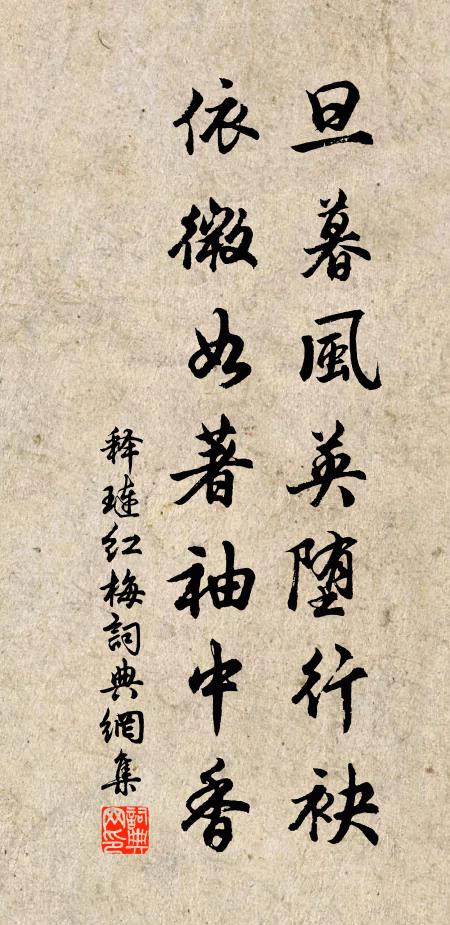 旦暮風英堕行袂
依微如著袖中香
释璉红梅詞典網集
詞典網印